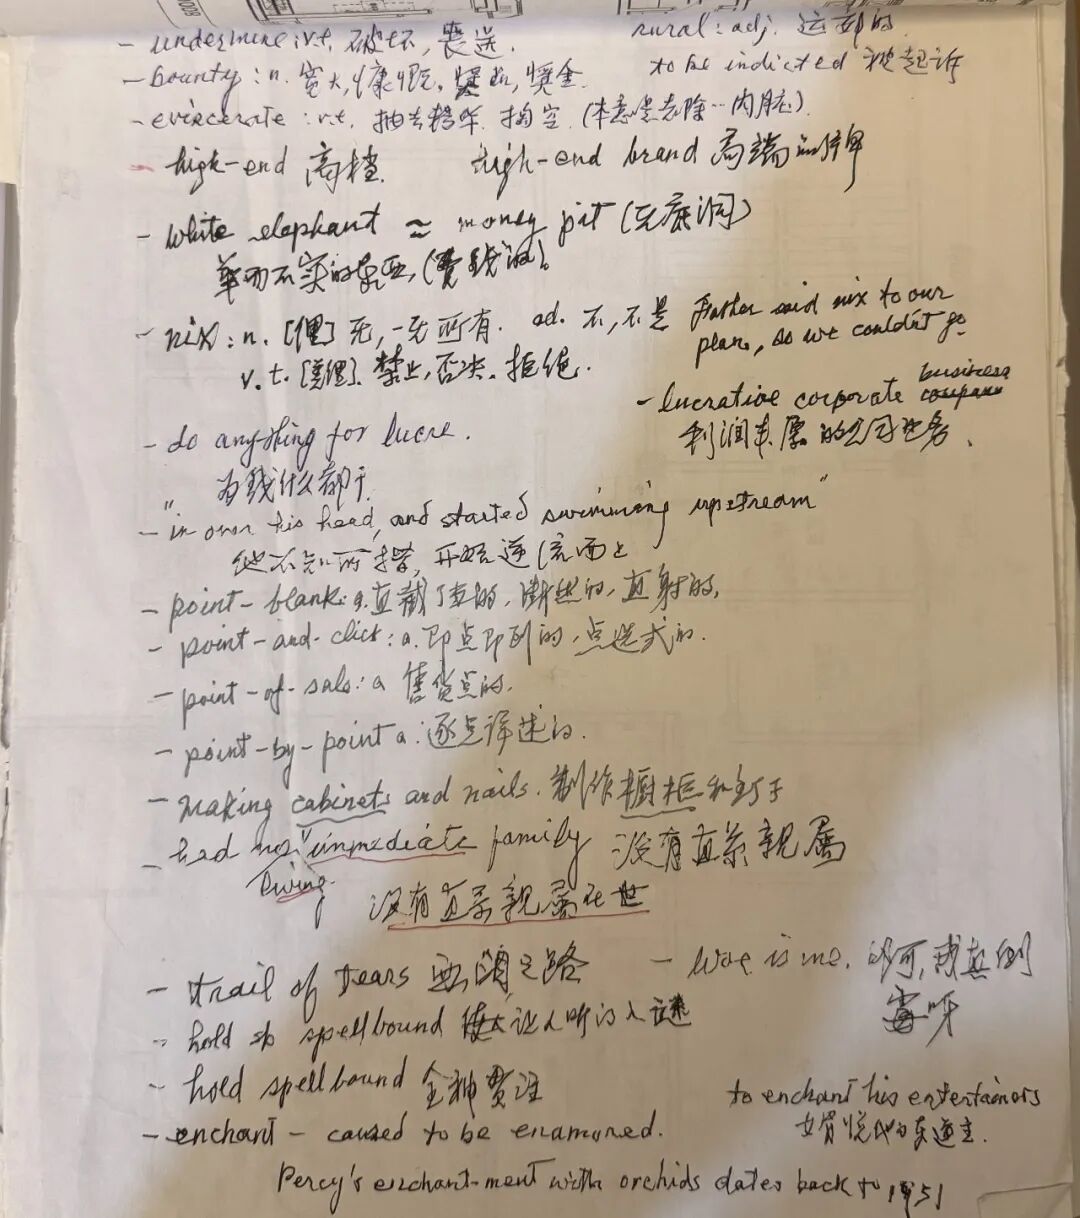 - undermine: v.t. 破坏,丧送.
rural: adj. 远郊的
- bounty: n. 宽大,慷慨, 奖金.
to be indicted 被起诉
- eviscerate: v.t. 抽去精华. 掏空. (本意是去除…内脏)
- high-end 高档.
high-end brand 高端品牌
- white elephant ≈ money pit (无底洞)
华而不实的东西, (费钱的).
- nix: n. [俚] 无, 一无所有. ad. 不, 不是
Father said nix to our
plan, so we couldn't go.
v.t. [美俚]. 禁止, 否决. 拒绝.
- lucrative corporate business
利润丰厚的公司业务.
- do anything for lucre.
为钱什么都干
- "in over his head, and started swimming upstream"
他不知所措, 开始逆流而上
- point-blank: a. 直截了当的, 断然的, 直射的,
- point-and-click: a. 即点即到的, 点选式的.
- point-of-sals: a 售货点的,
- point-by-point a. 逐点详述的.
- making cabinets and nails. 制作橱柜和钉子
- had no "immediate family 没有直系親属
living.
没有直系親属在世
- trail of tears 血泪之路
- woe is me. 我真倒
霉呀
- hold sb spellbound 使人听得入谜
- hold spellbound 全神贯注
to enchant his entertainors
取悦他的东道主.
- enchant - caused to be enamored.
Percy's enchant-ment with orchids dates back to 1951